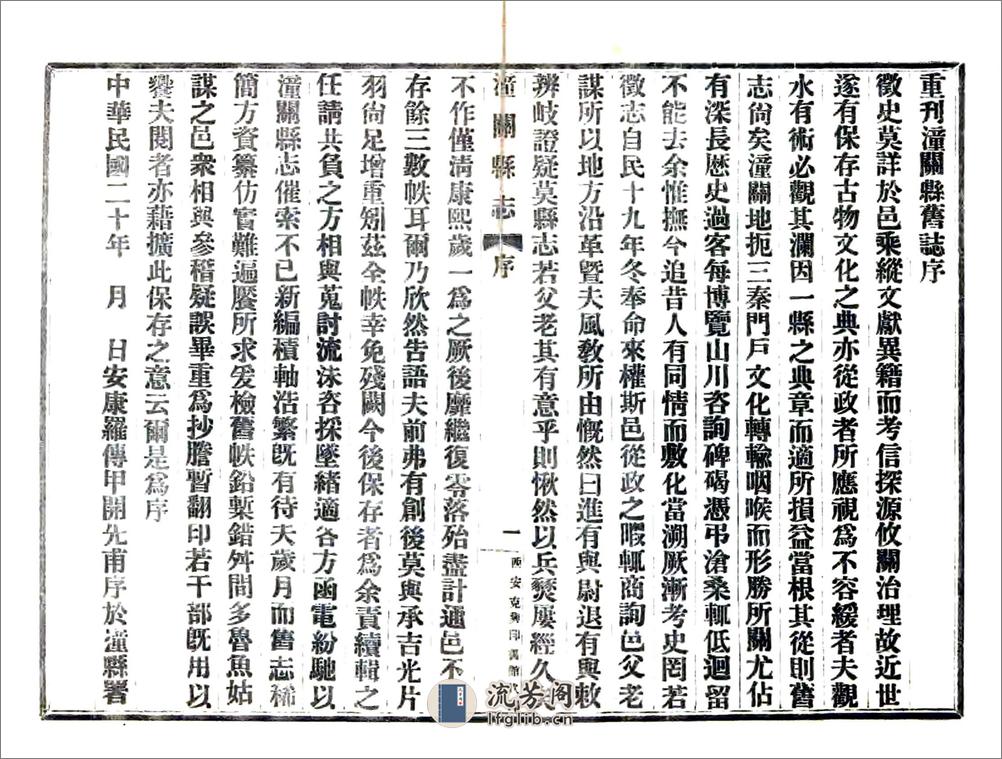 重刊潼關縣舊誌序
徵史莫詳於邑乘縱文獻異籍而考信探源攸關治理故近世
遂有保存古物文化之典亦從政者所應視爲不容緩者夫觀
水有術必觀其瀾因一縣之典章而適所損益當根其從則舊
志尙矣潼關地扼三秦門戶文化轉輸咽喉而形勝所關尤佔
有深長歷史過客每博覽山川咨詢碑碣憑弔滄桑輒低迴留
不能去余惟撫今追昔人有同情而敷化當溯厥漸考史罔若
徵志自民十九年冬奉命來權斯邑從政之暇輒商詢邑父老
謀所以地方沿革暨夫風敎所由慨然曰進有與尉退有與敕
辨岐證疑莫縣志若父老其有意乎則愀然以兵燹屢經久矣
潼關縣志 序 一 西安克興印書館
不作僅淸康熙歲一爲之厥後靡繼復零落殆盡計邇邑不
存餘三數帙耳爾乃欣然告語夫前弗有創後莫與承吉光片
羽尙足增重矧茲全帙幸免殘闕今後保存者爲余責續輯之
任請共負之方相與蒐討流沬咨採墜緒適各方函電紛馳以
潼關縣志催索不已新編積軸浩繁旣有待夫歲月而舊志稀
簡方資纂仿實難遍饜所求爰檢舊帙鉛槧錯舛間多魯魚姑
謀之邑衆相與參稽疑誤畢重爲抄謄暫翻印若干部旣用以
饗夫閱者亦藉擴此保存之意云爾是爲序
中華民國二十年 月 日安康羅傳甲開先甫序於潼縣署
流芳閣
lfglib.cn